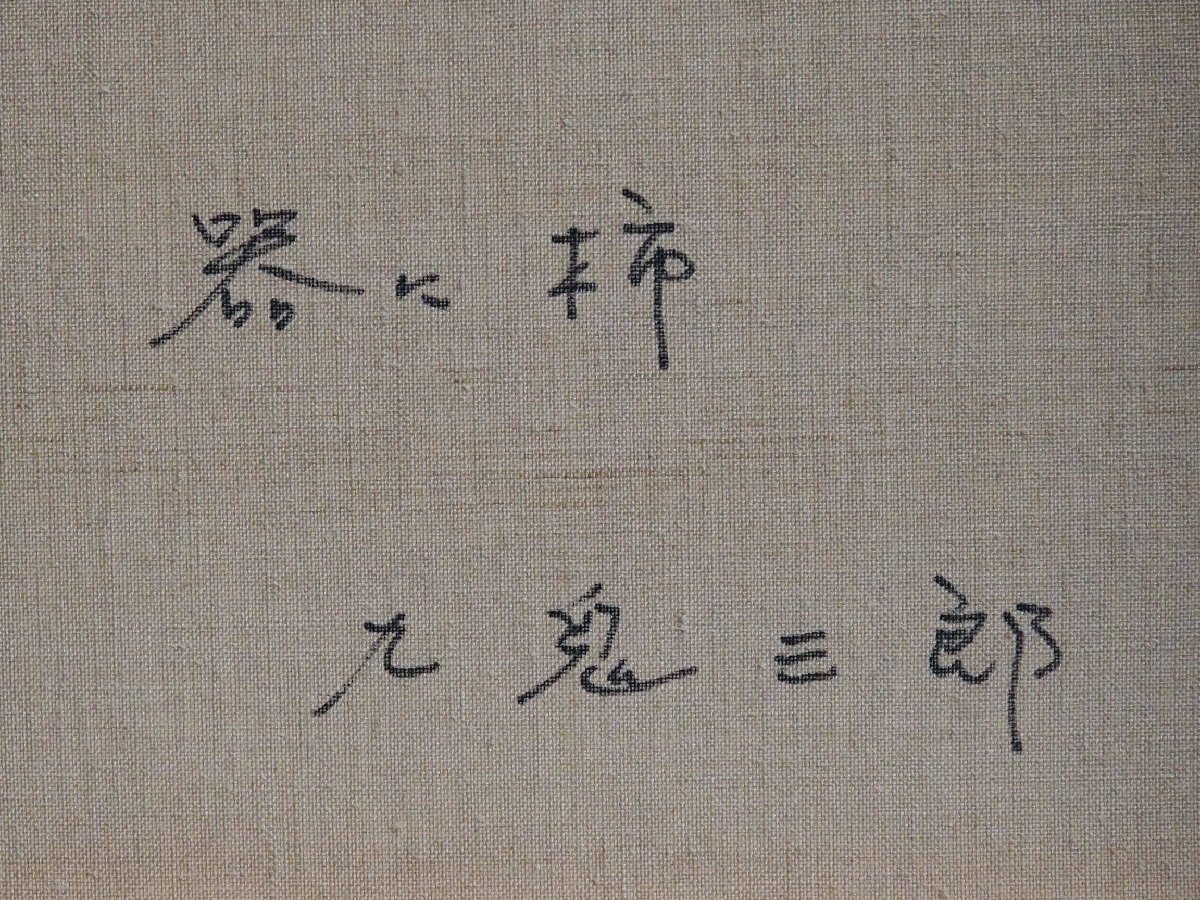 器に 柿
九鬼三郎